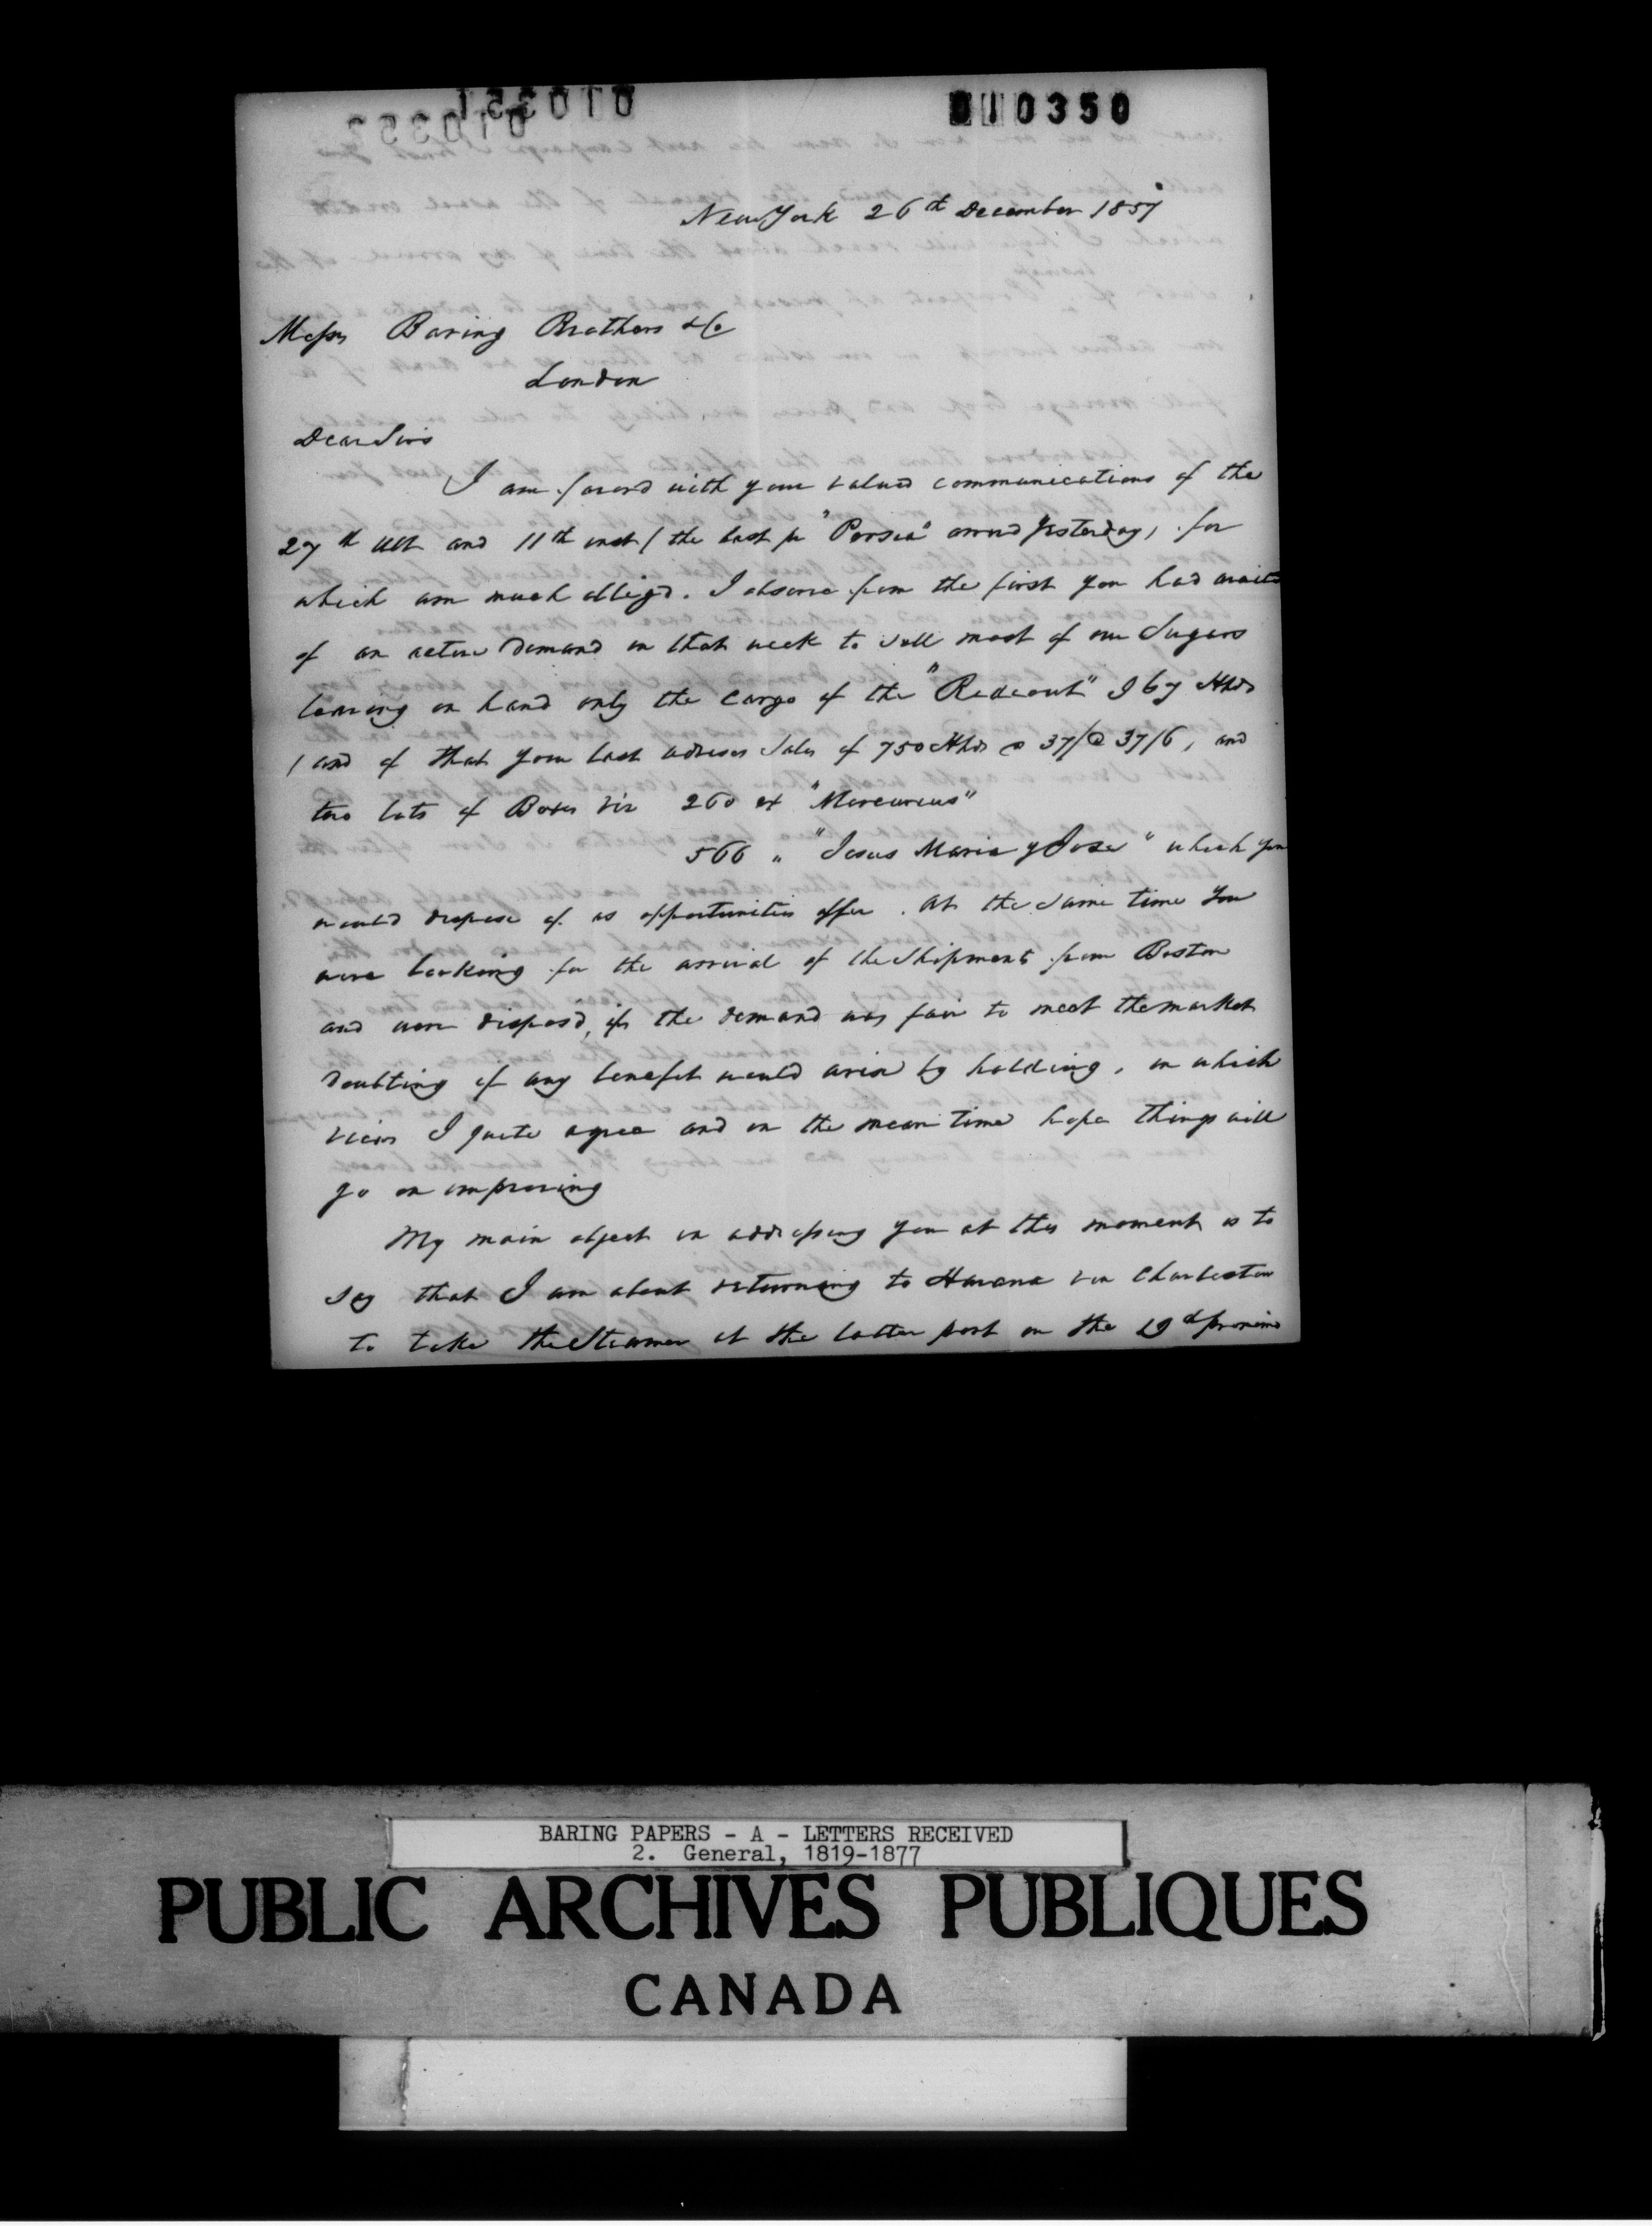 010350
New York 26th December 1857
Messrs Baring Brothers & Co
London
Dear Sirs
I am favord with your valued communications of the
27th Ult and 11th inst (the last pr "Persia" arrivd yesterday) for
which am much obligd. I observe from the first you had availd
of an active demand in that week to sell most of our Sugars
leaving on hand only the Cargo of the "Rideout" 967 Hhds
(and of that your last advises Sales of 750 Hhds @ 37/ @ 37/6) and
two lots of Boxes viz 260 ex "Mercurius"
566 " "Jesus Maria y Jose" which you
would dispose of as opportunities offer. At the same time you
were looking for the arrival of the Shipments from Boston
and were disposd, if the demand was fair to meet the market
doubting if any benefit would arise by holding, in which
view I quite agree and in the mean time hope things will
go on improving
My main object in addressing you at this moment is to
say that I am about returning to Havana via Charleston
to take the Steamer at the latter port on the proximo
BARING PAPERS - A - LETTERS RECEIVED
2. General, 1819-1877
PUBLIC ARCHIVES PUBLIQUES
CANADA